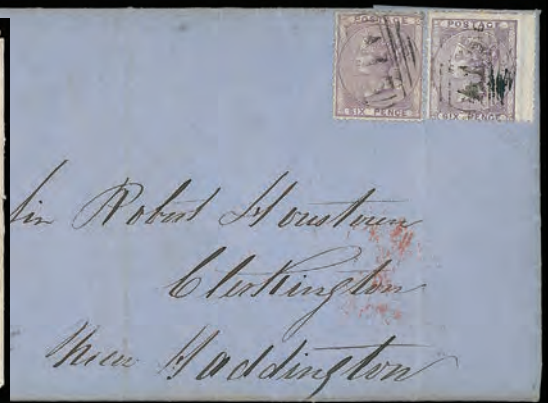 POSTAGE POSTAGE
SIX PENCE SIX PENCE
Sir Robert Houstoun
Clerkington
Near Haddington